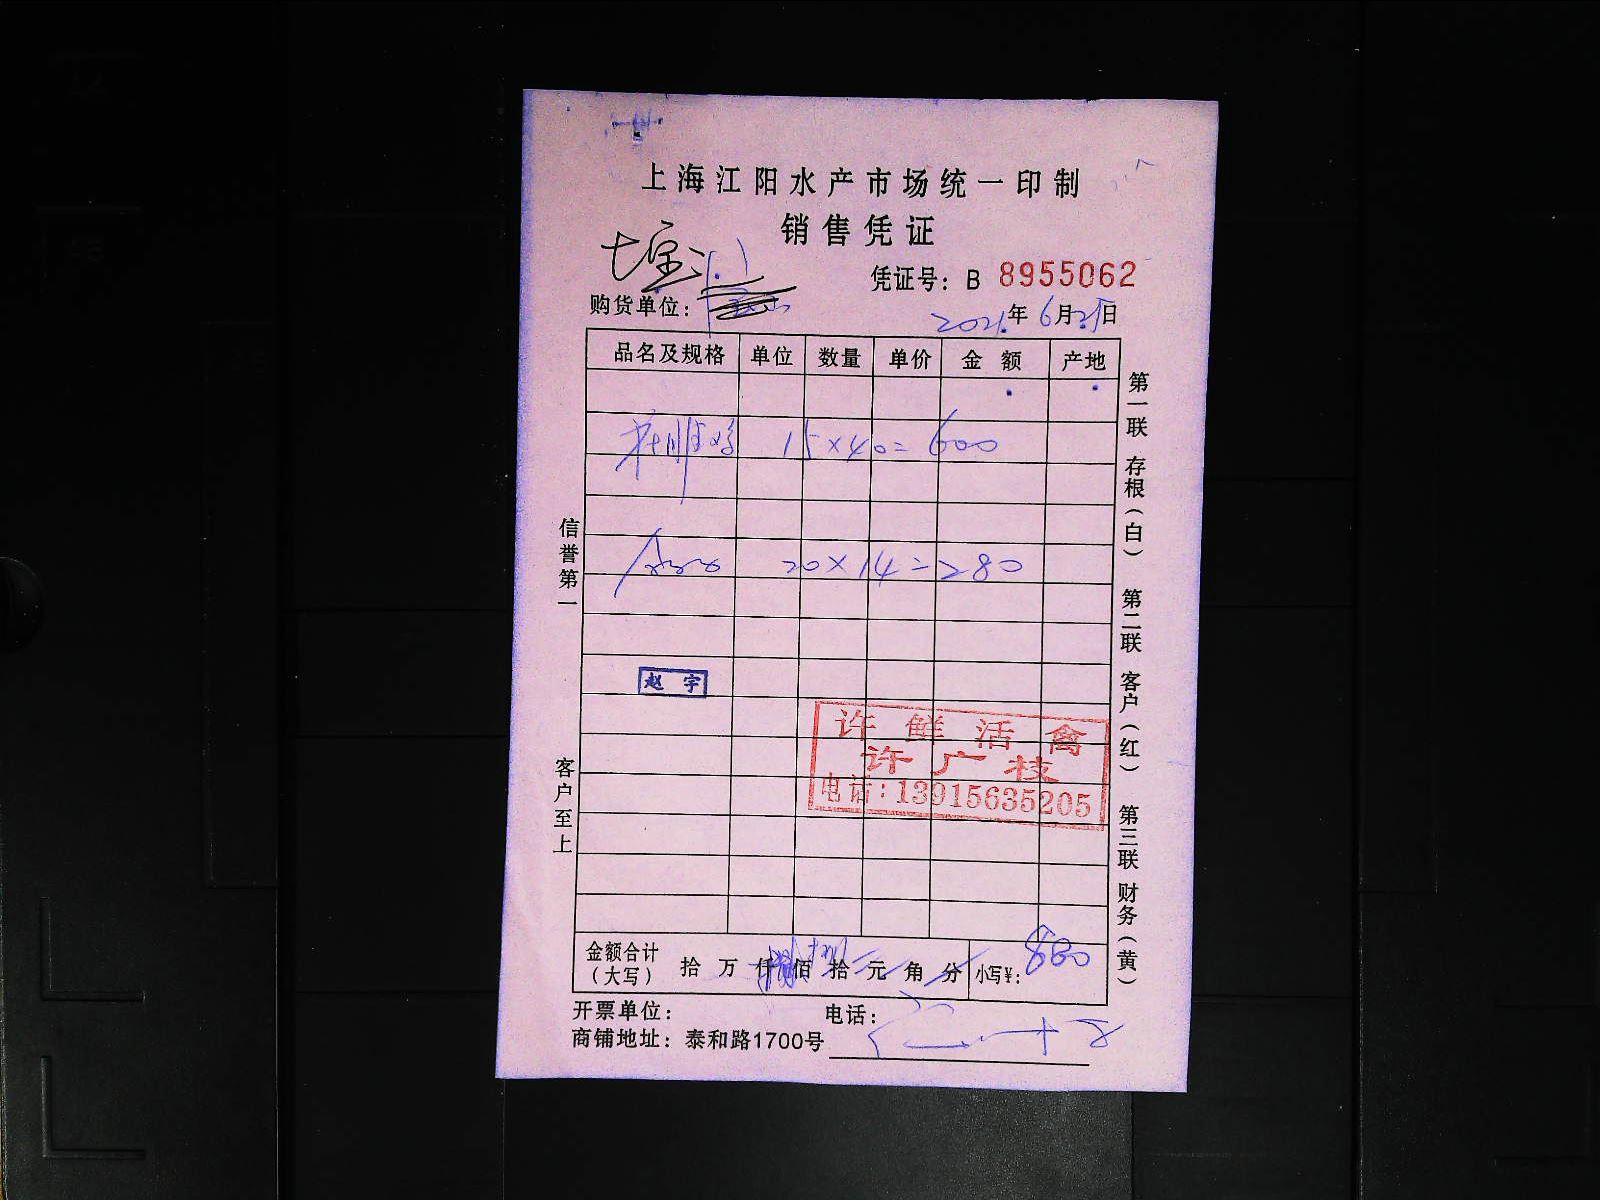 上海江阳水产市场统一印制
销售凭证
七宝
凭证号：B 8955062
购货单位：
2021年6月25日
品名及规格 单位 数量 单价 金额 产地
15×40=600
20×14=280
赵宇
许鲜活禽
许广枝
电话：13915635205
金额合计（大写） 拾 万 仟 佰 拾 元 角 分 小写¥：880
开票单位： 电话：
商铺地址：泰和路1700号
信誉第一 客户至上
第一联 存根（白） 第二联 客户（红） 第三联 财务（黄）